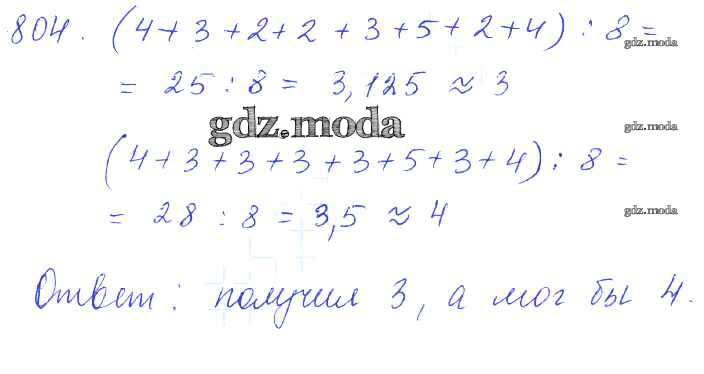 804. (4+3+2+2+3+5+2+4) : 8 =
gdz.moda
= 25 : 8 = 3,125 ≈ 3
gdz.moda
gdz.moda
(4+3+3+3+3+5+3+4) : 8 =
= 28 : 8 = 3,5 ≈ 4
gdz.moda
Ответ: получил 3, а мог бы 4.